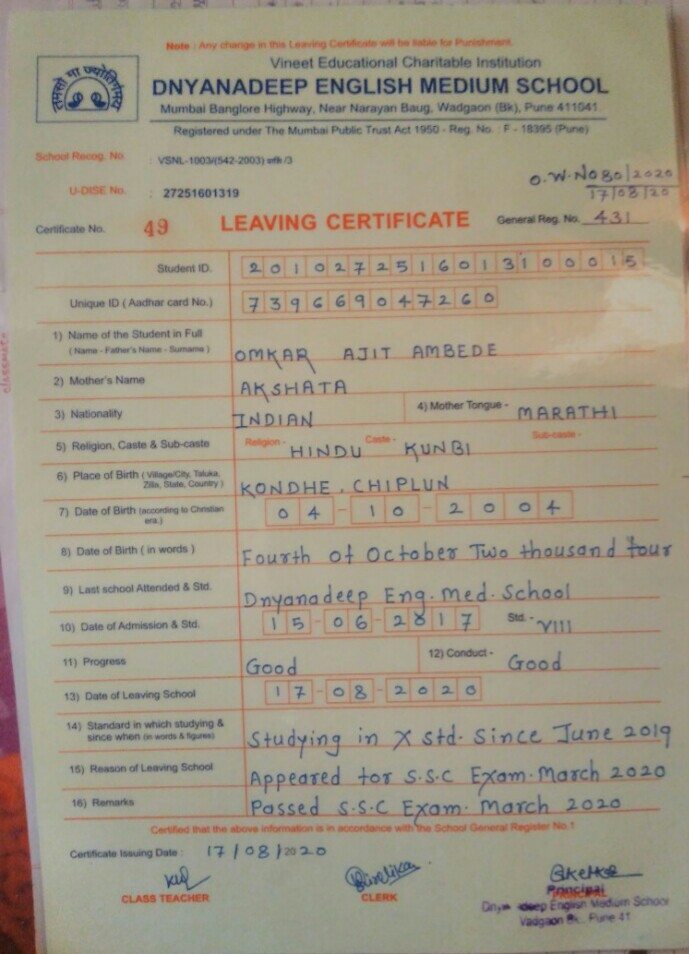 Note : Any change in this Leaving Certificate will be liable for Punishment.
तमसो मा ज्योतिर्गमय
Vineet Educational Charitable Institution
DNYANADEEP ENGLISH MEDIUM SCHOOL
Mumbai Banglore Highway, Near Narayan Baug, Wadgaon (Bk), Pune 411041.
Registered under The Mumbai Public Trust Act 1950 - Reg. No. : F - 18395 (Pune)
School Recog. No. : VSNL-1003/(542-2003) /3
O.W.No 80/2020
U-DISE No. : 27251601319
17/08/20
Certificate No. 49 LEAVING CERTIFICATE General Reg. No. 431
Student ID. 2010272516013100015
Unique ID ( Aadhar card No.) 739669047260
1) Name of the Student in Full
( Name - Father's Name - Surname ) OMKAR AJIT AMBEDE
2) Mother's Name AKSHATA
3) Nationality INDIAN 4) Mother Tongue - MARATHI
5) Religion, Caste & Sub-caste Religion - HINDU Caste - KUNBI Sub-caste -
6) Place of Birth ( Village/City, Taluka,
Zilla, State, Country ) KONDHE. CHIPLUN
7) Date of Birth (according to Christian
era.) 04-10-2004
8) Date of Birth ( in words ) Fourth of October Two thousand four
9) Last school Attended & Std. Dnyanadeep Eng. Med. School
10) Date of Admission & Std. 15-06-2017 Std. - VIII
11) Progress Good 12) Conduct - Good
13) Date of Leaving School 17-08-2020
14) Standard in which studying &
since when (in words & figures) Studying in X std. Since June 2019
15) Reason of Leaving School Appeared for S.S.C Exam. March 2020
16) Remarks Passed S.S.C Exam. March 2020
Certified that the above information is in accordance with the School General Register No.1
Certificate Issuing Date : 17/08/2020
CLASS TEACHER CLERK PRINCIPAL
Principal
English Medium School
Vadgaon Bk., Pune 41